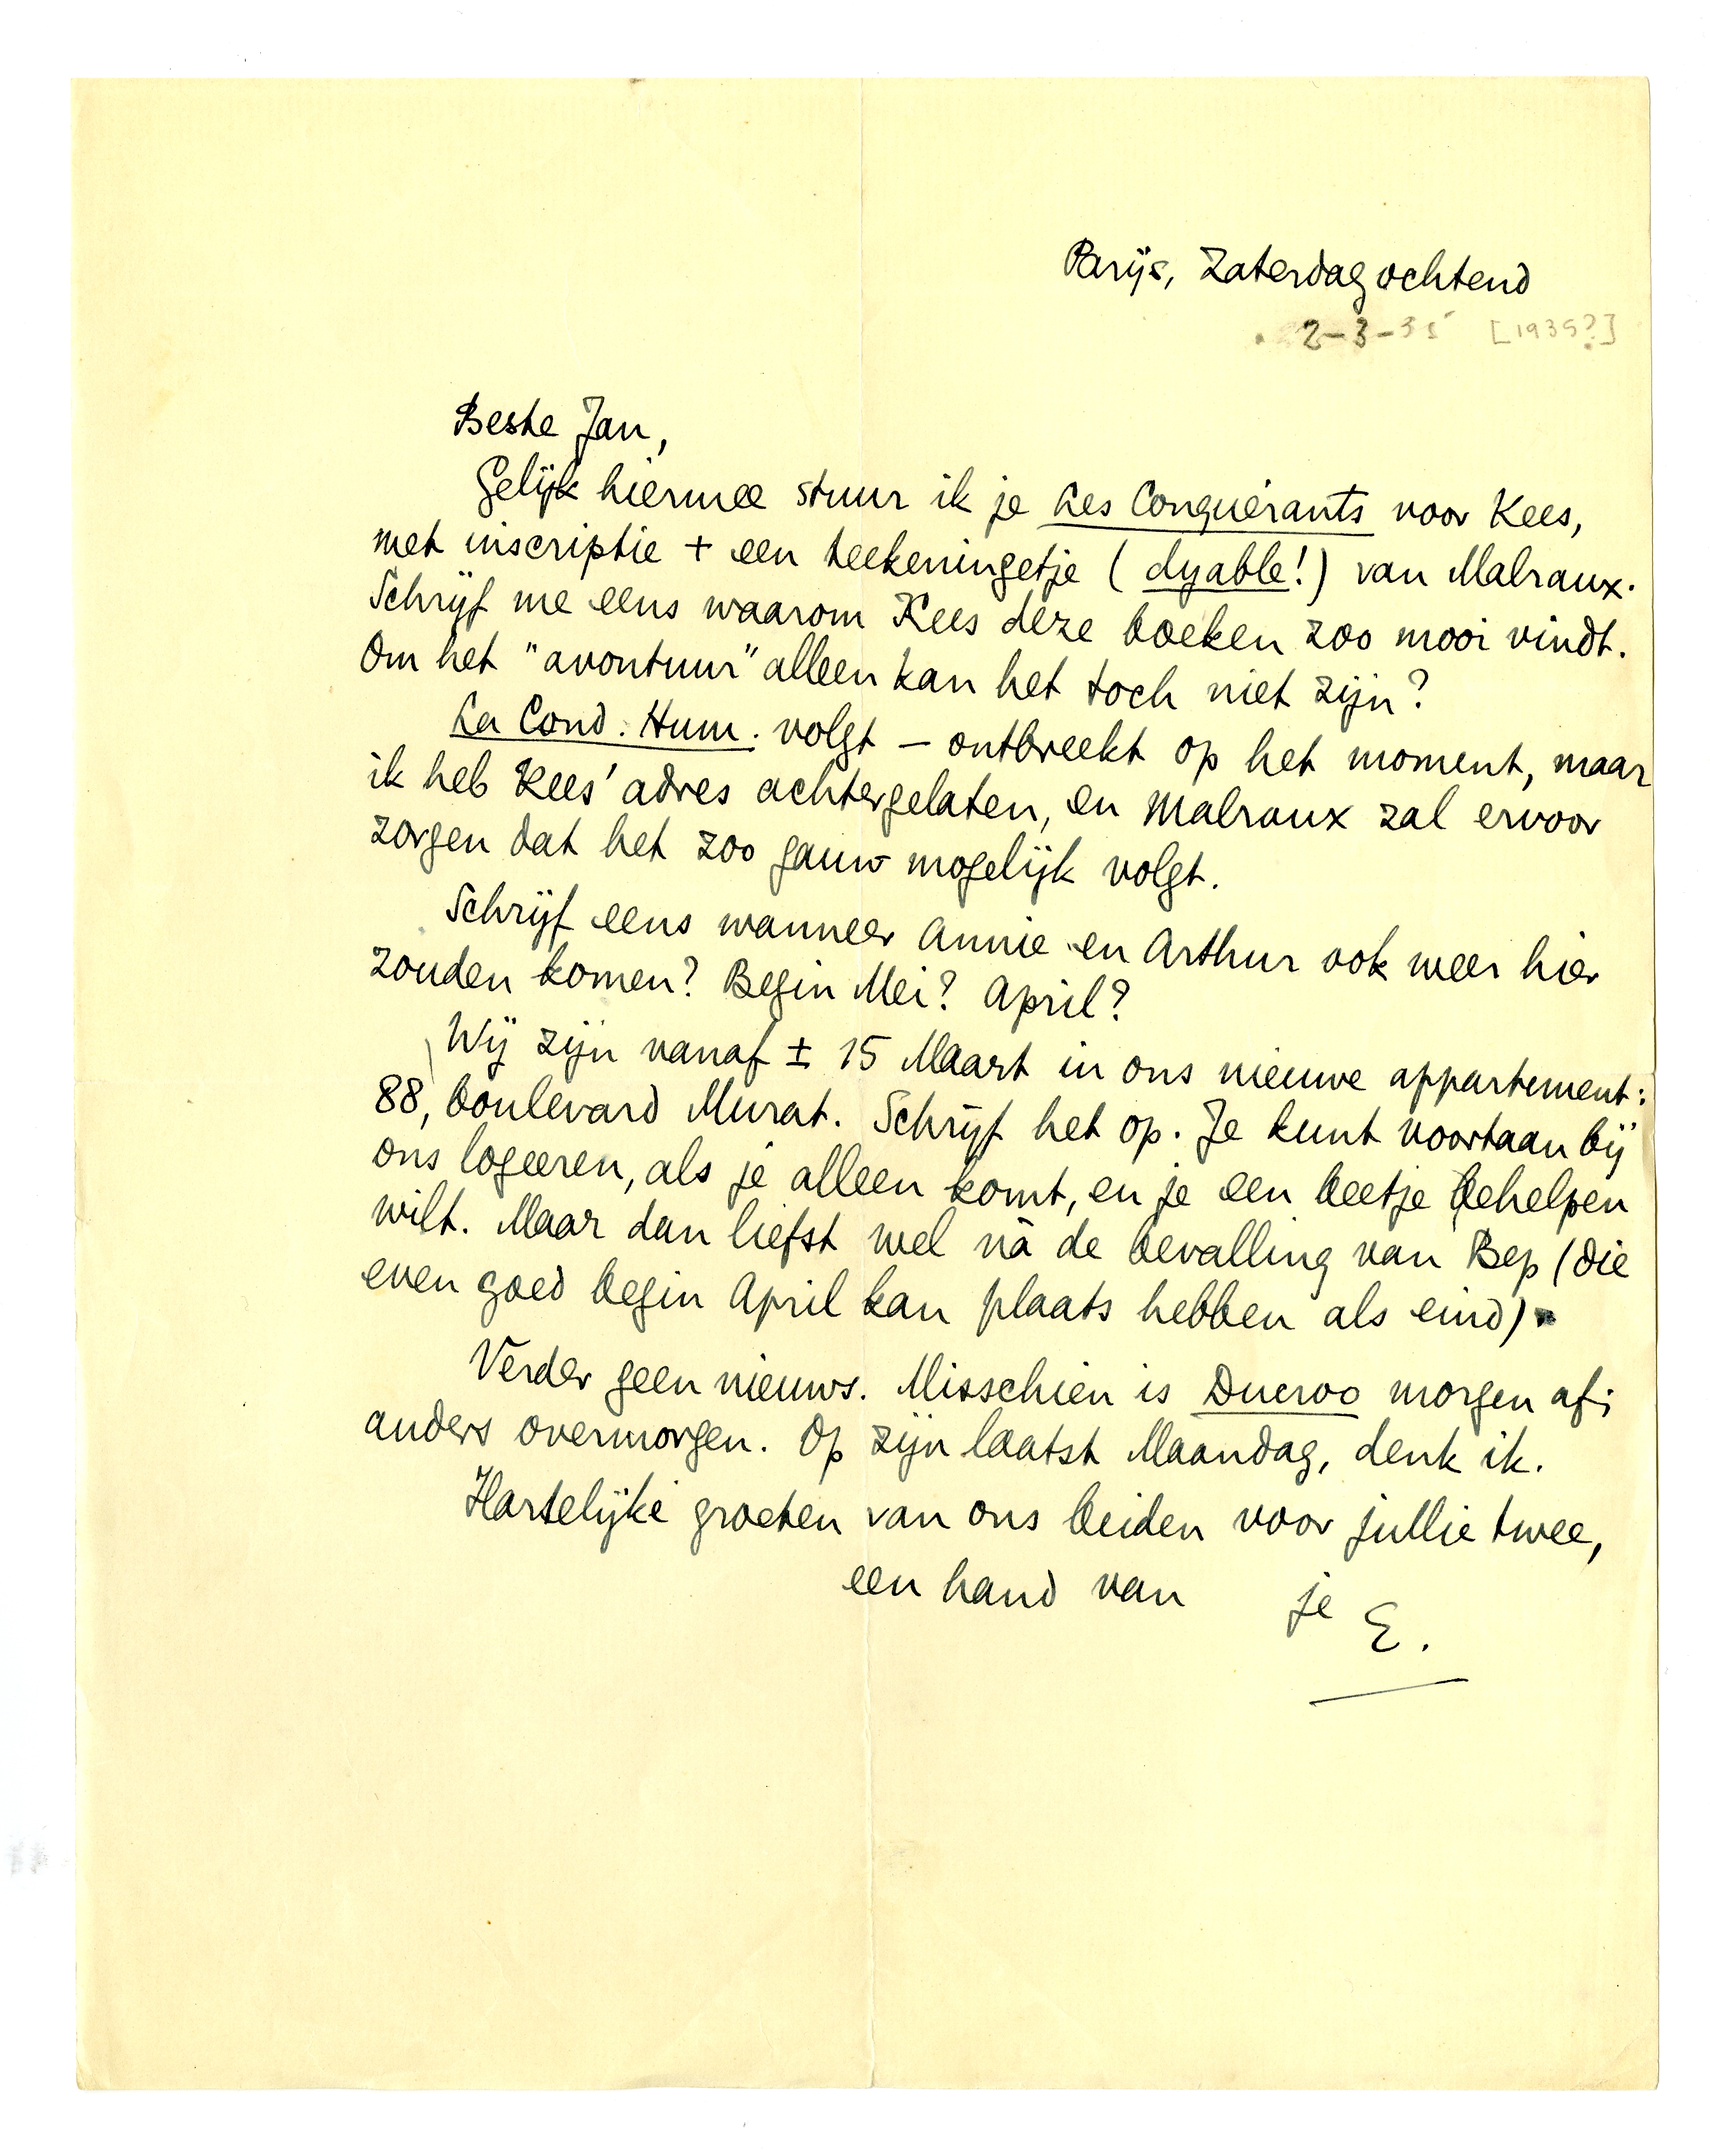 Parijs, Zaterdagochtend
2-3-35 [1935?]
Beste Jan,
Gelijk hiermee stuur ik je Les Conquérants voor Kees,
met inscriptie + een teekeningetje (dyable!) van Malraux.
Schrijf me eens waarom Kees deze boeken zoo mooi vindt.
Om het "avontuur" alleen kan het toch niet zijn?
La Cond. Hum. volgt – ontbreekt op het moment, maar
ik heb Kees' adres achtergelaten, en Malraux zal ervoor
zorgen dat het zoo gauw mogelijk volgt.
Schrijf eens wanneer Annie en Arthur ook weer hier
zouden komen? Begin Mei? April?
Wij zijn vanaf ± 15 Maart in ons nieuwe appartement:
88, boulevard Murat. Schrijf het op. Je kunt voortaan bij
ons logeeren, als je alleen komt, en je een beetje behelpen
wilt. Maar dan liefst wel nà de bevalling van Bep (die
even goed begin April kan plaats hebben als eind).
Verder geen nieuws. Misschien is Ducroo morgen af;
anders overmorgen. Op zijn laatst Maandag, denk ik.
Hartelijke groeten van ons beiden voor jullie twee,
een hand van je
E.